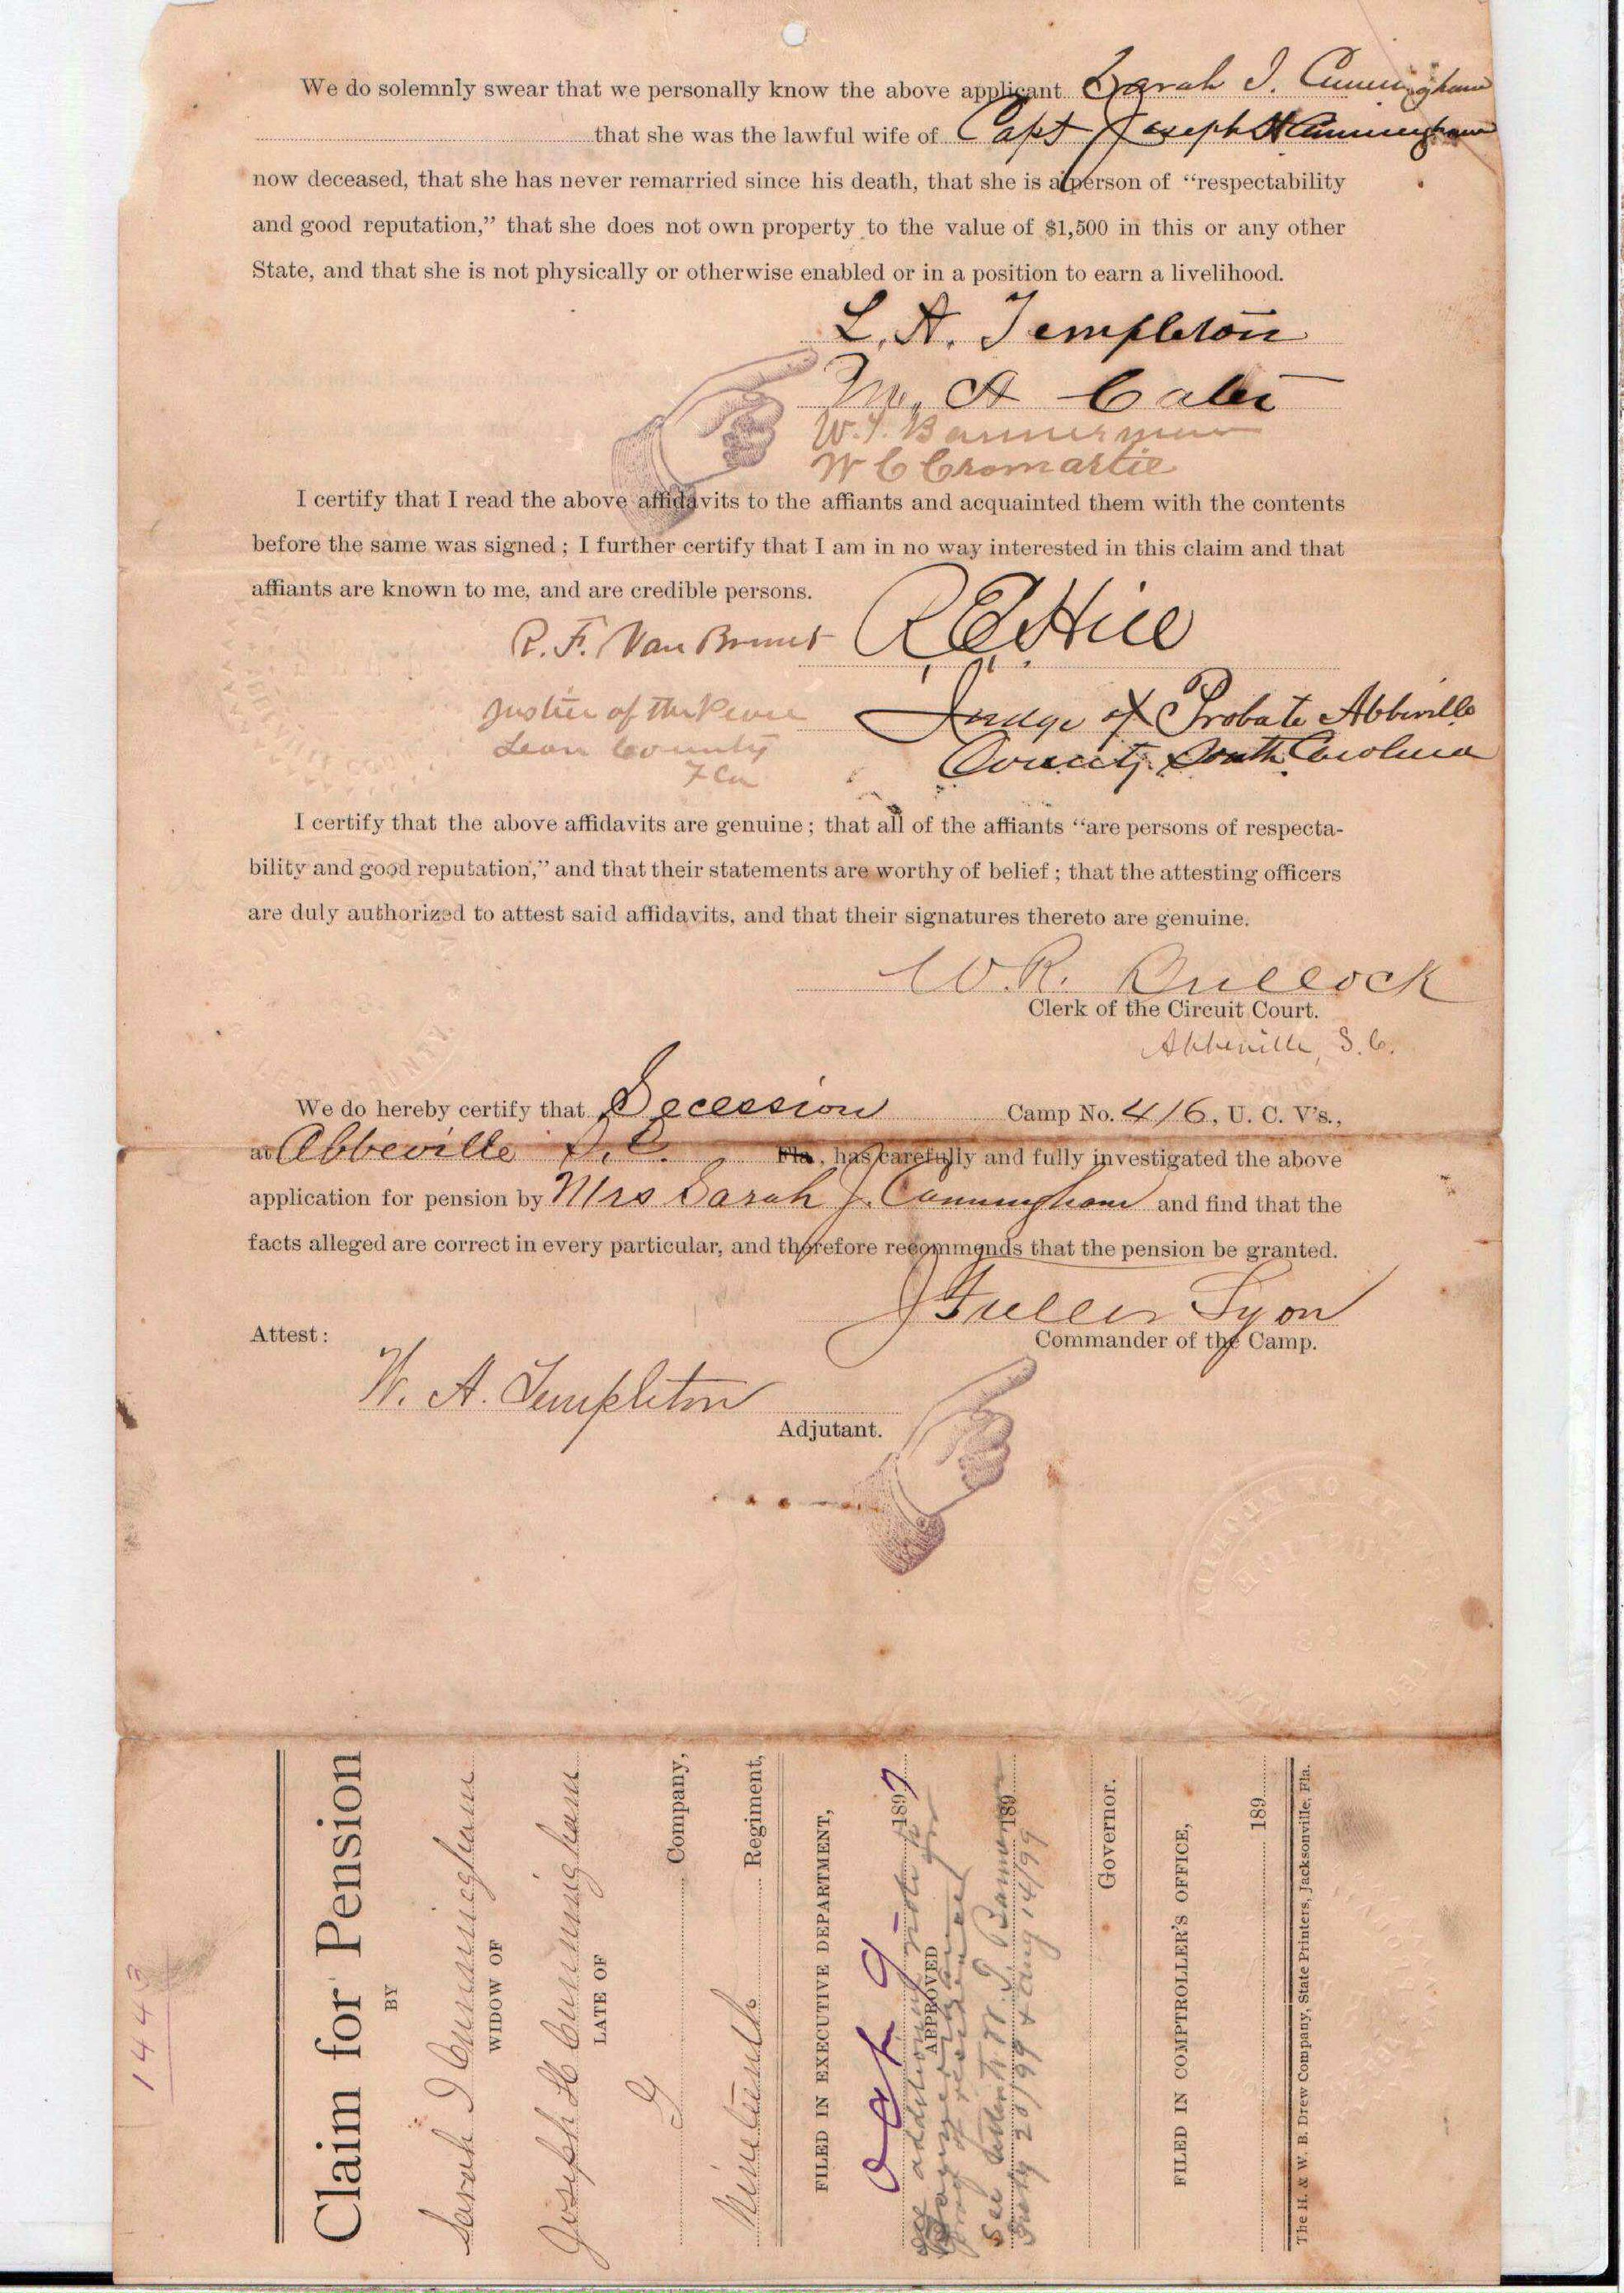 We do solemnly swear that we personally know the above applicant Sarah I. Cunningham
that she was the lawful wife of Capt Joseph H Cunningham
now deceased, that she has never remarried since his death, that she is a person of “respectability
and good reputation,” that she does not own property to the value of $1,500 in this or any other
State, and that she is not physically or otherwise enabled or in a position to earn a livelihood.
L. A. Templeton
M. A Cater
W. T. Bannerman
W C Cromartie
I certify that I read the above affidavits to the affiants and acquainted them with the contents
before the same was signed; I further certify that I am in no way interested in this claim and that
affiants are known to me, and are credible persons.
R. F. Van Brunt R E Hill
Justice of the Peace Judge of Probate Abbeville
Leon County County South Carolina
Fla
I certify that the above affidavits are genuine; that all of the affiants “are persons of respecta-
bility and good reputation,” and that their statements are worthy of belief; that the attesting officers
are duly authorized to attest said affidavits, and that their signatures thereto are genuine.
W. R. Bullock
Clerk of the Circuit Court.
Abbeville, S. C.
We do hereby certify that Secession Camp No. 416, U. C. V's.,
at Abbeville S. C. Fla., has carefully and fully investigated the above
application for pension by Mrs Sarah J. Cunningham and find that the
facts alleged are correct in every particular, and therefore recommends that the pension be granted.
J Fuller Lyon
Commander of the Camp.
Attest:
W. A. Templeton
Adjutant.
1443
Claim for Pension
BY
Sarah I Cunningham
WIDOW OF
Joseph H Cunningham
LATE OF
G Company,
Nineteenth Regiment,
FILED IN EXECUTIVE DEPARTMENT,
Oct 9 1897
See additional
APPROVED
proof of residence
See letter to W. T. Bannerman 189
July 20/99 & Aug 14/99
Governor.
FILED IN COMPTROLLER'S OFFICE,
189
The H. & W. B. Drew Company, State Printers, Jacksonville, Fla.